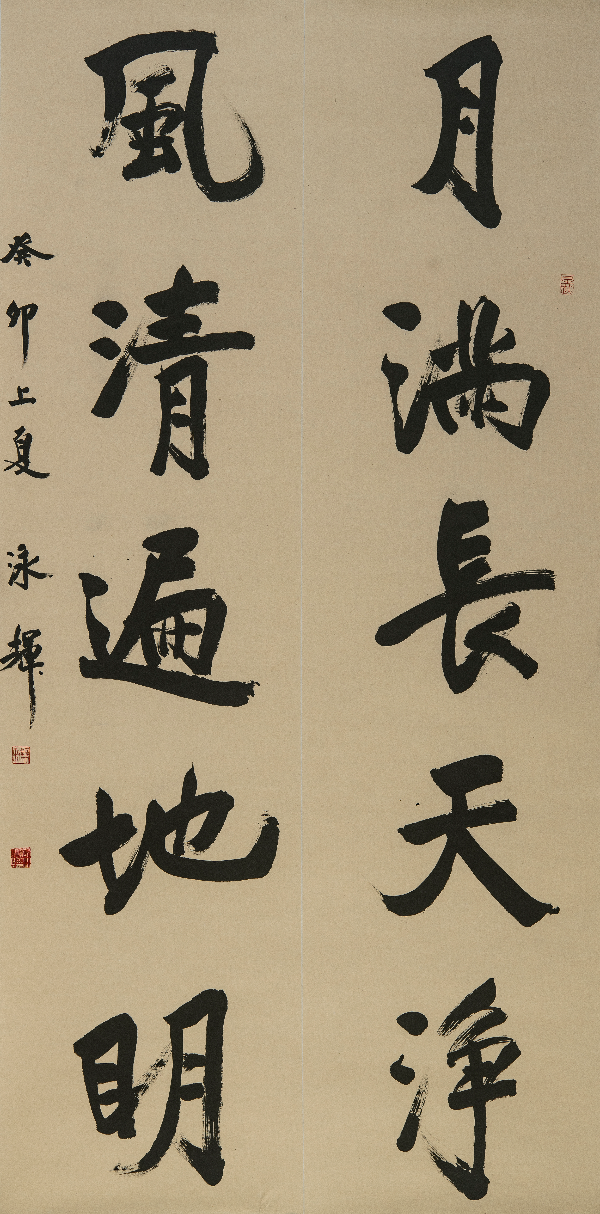 月滿長天淨
風清遍地明
癸卯上夏 泳輝